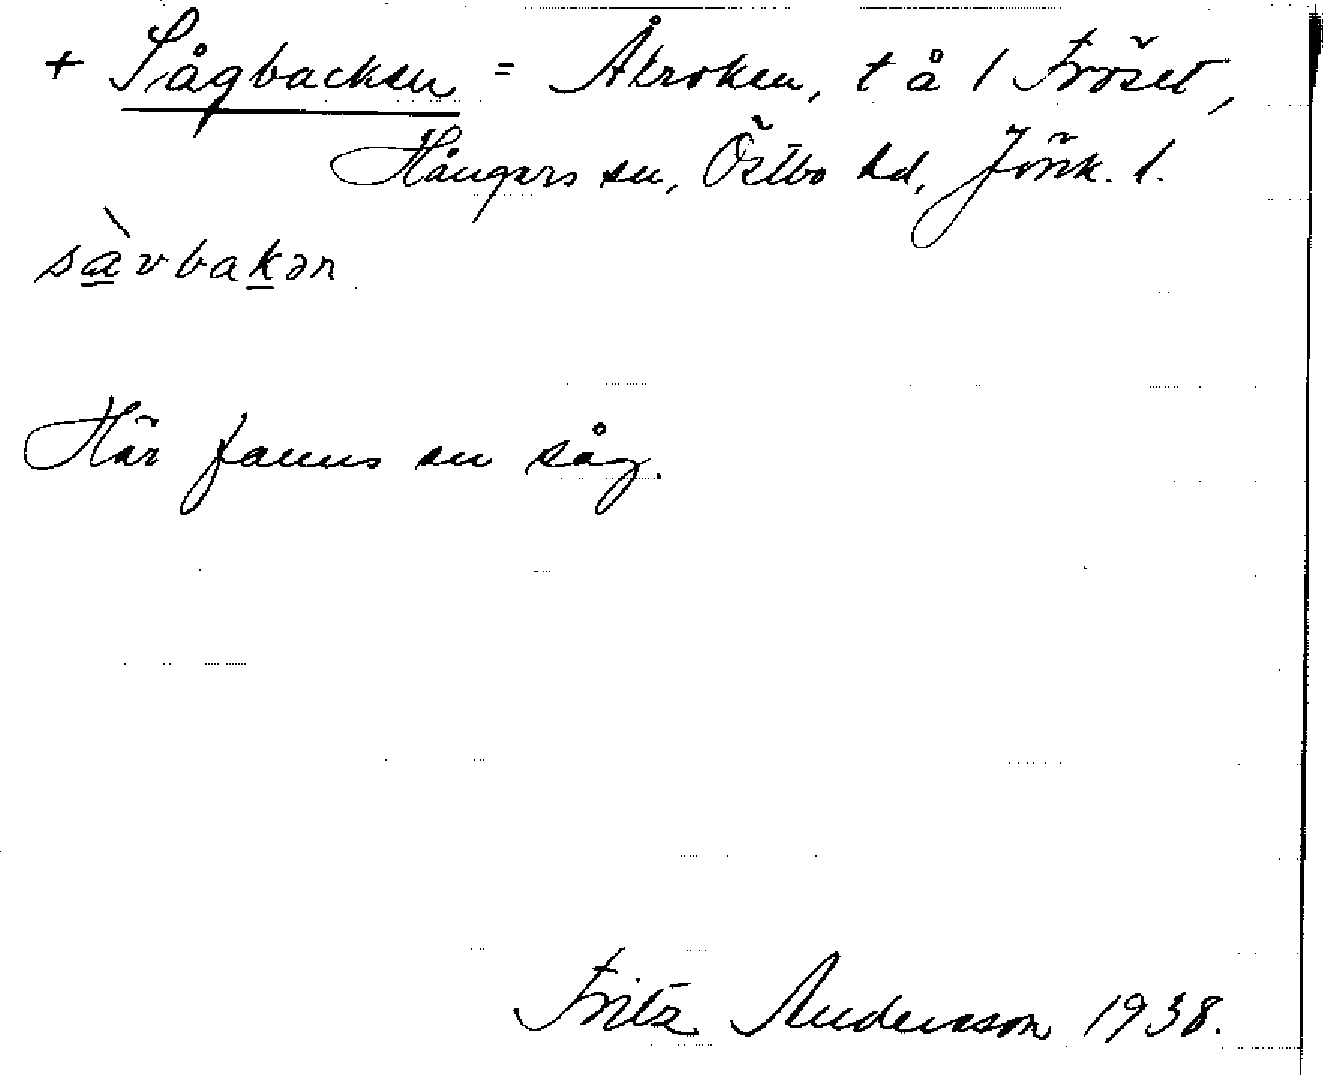 + Sågbacken = Åkroken, t å 1 Fröset,
Hångers sn, Östbo hd, Jönk. l.
sàvbakən
Här fanns en såg.
Fritz Andersson 1938.